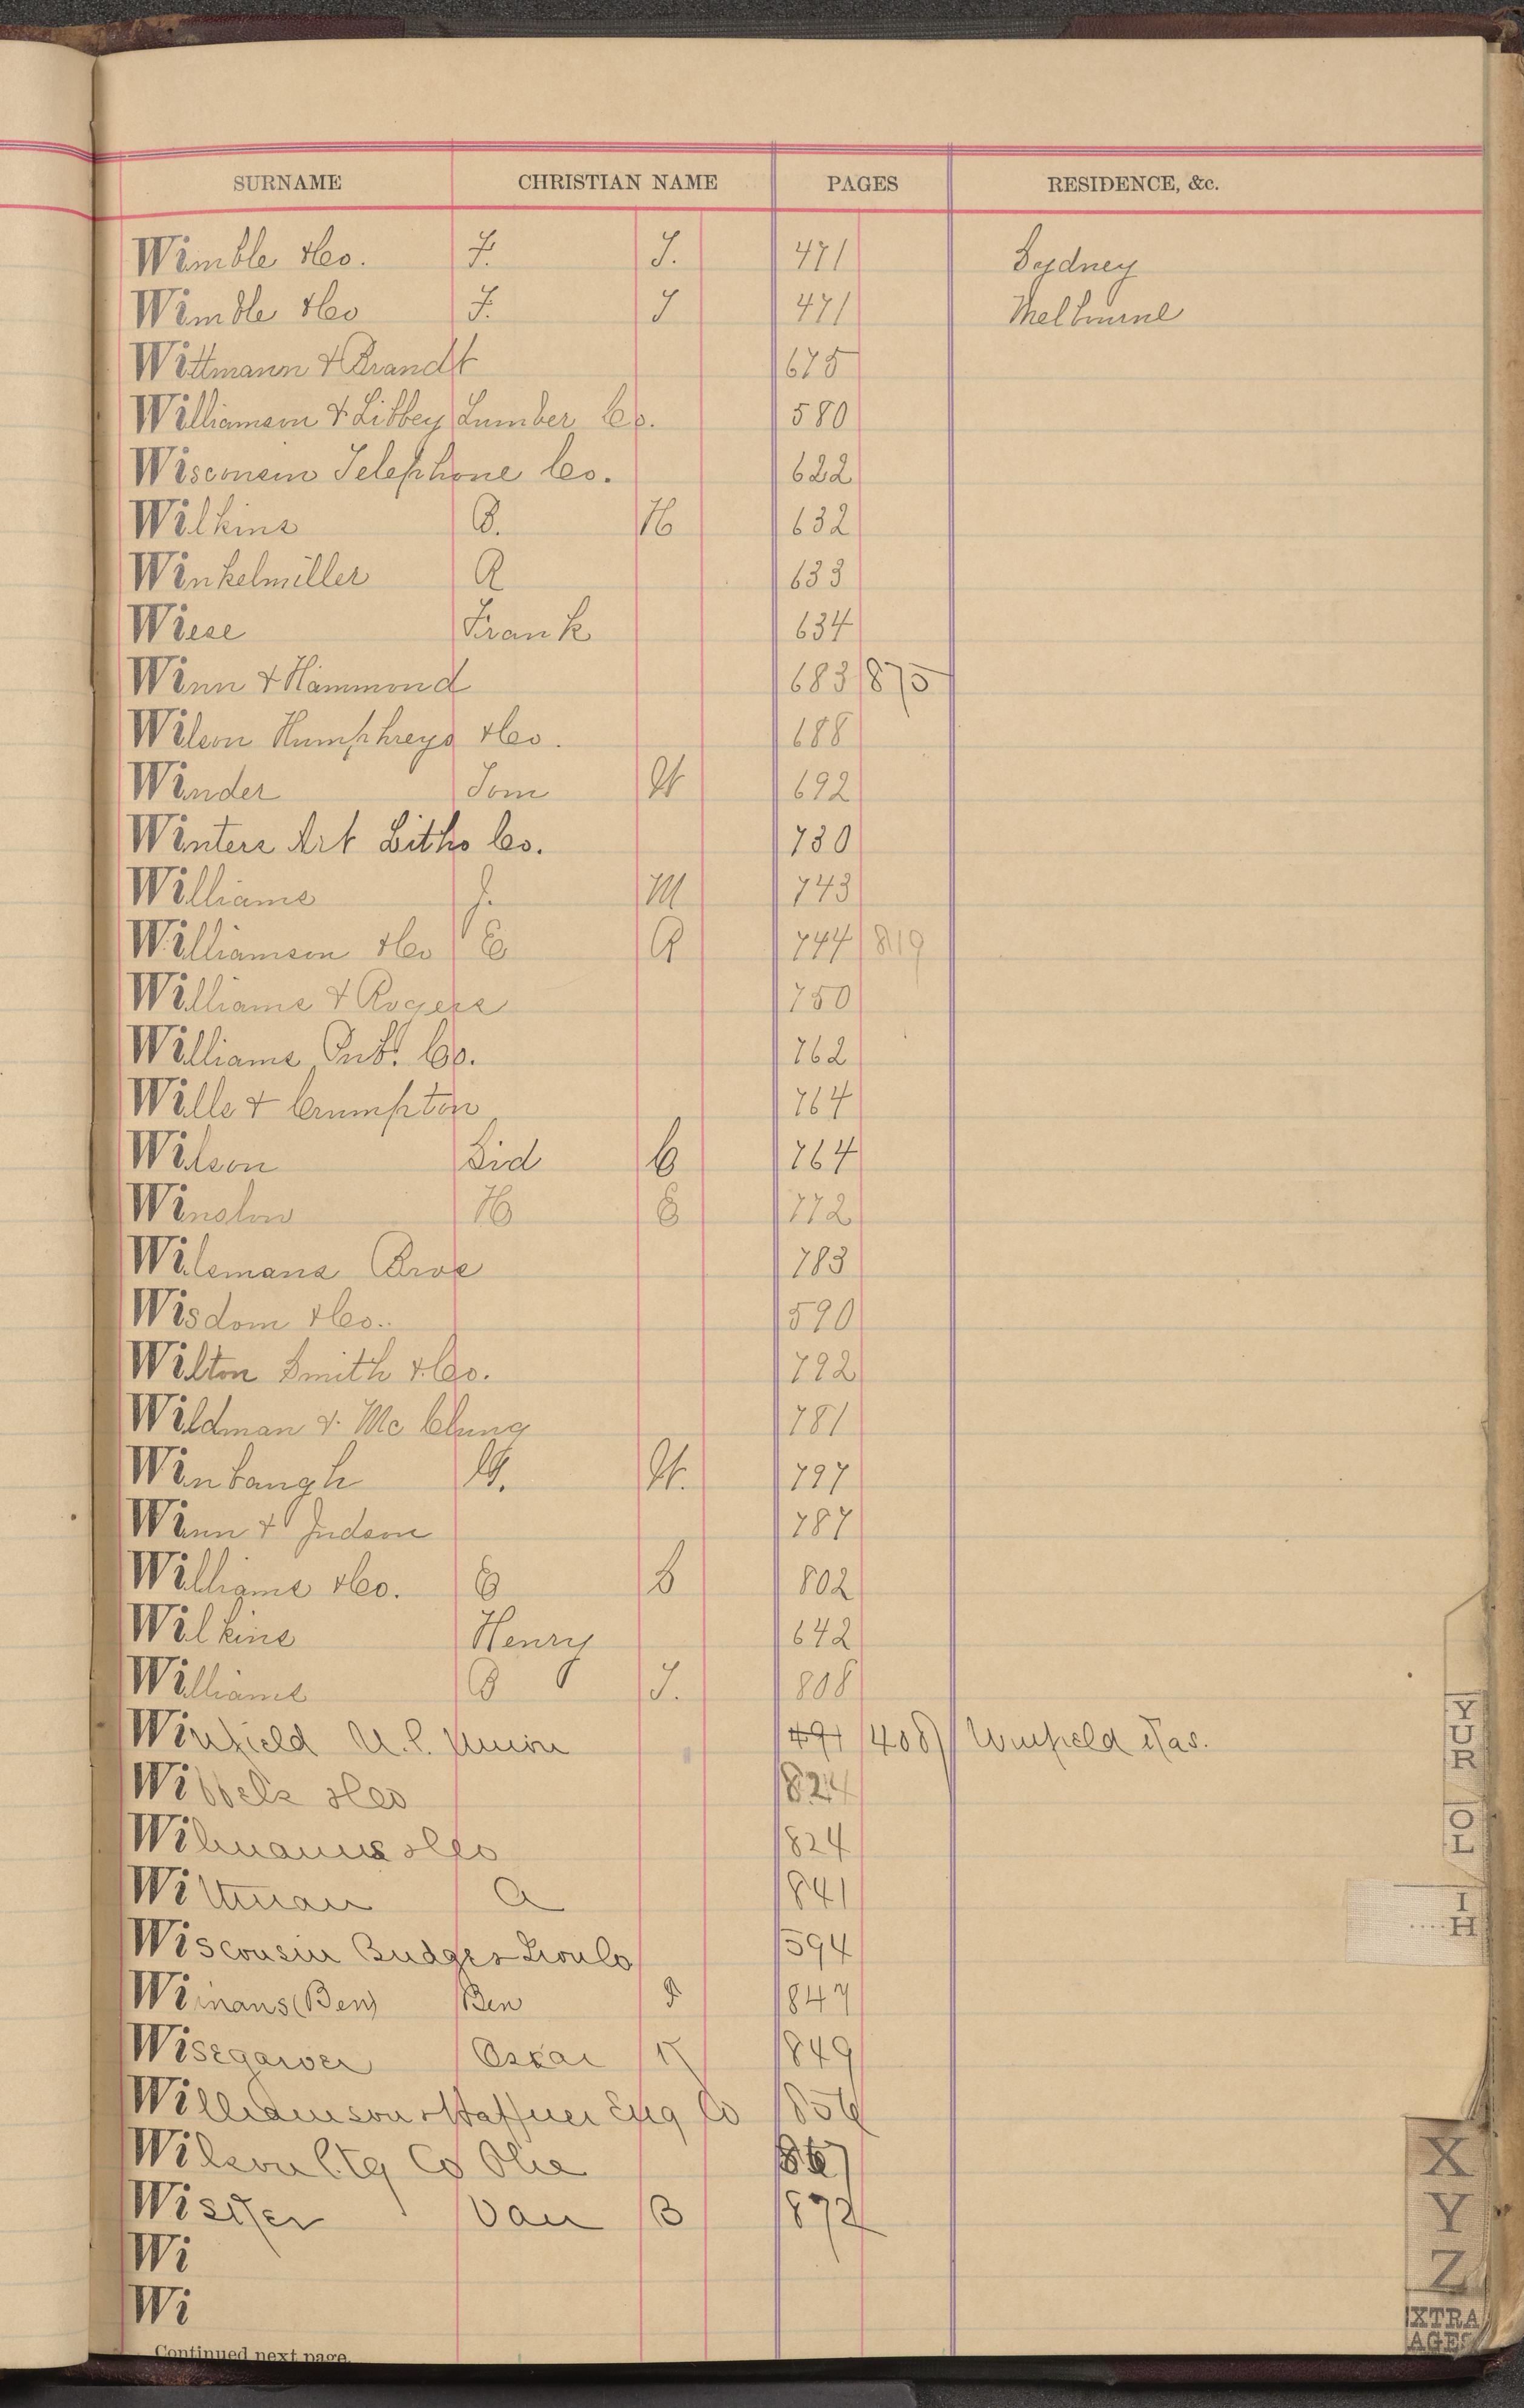 SURNAME CHRISTIAN NAME PAGES RESIDENCE, &c.
Wimble & Co. F. T. 471 Sydney
Wimble & Co F. T 471 Melbourne
Wittmann & Brandt 675
Williamson & Libbey Lumber Co. 580
Wisconsin Telephone Co. 622
Wilkins B. H 632
Winkelmiller A 633
Wiese Frank 634
Winn & Hammond 683 875
Wilson Humphreys & Co. 688
Winder Tom W 692
Winters Art Litho Co. 730
Williams J. M 743
Williamson & Co E A 744 819
Williams & Rogers 750
Williams Pub. Co. 762
Wills & Crumpton 764
Wilson Sid C 764
Winslow H E 772
Wilsmans Bros 783
Wisdom & Co. 590
Wilton Smith & Co. 792
Wildman & Mc Clung 781
Winbaugh W. 797
Winn & Judson 787
Williams & Co. C 802
Wilkins Henry 642
Williams B T. 808
Winfield U. Union 491 408 Winfield Kas.
Wibbels & Co 824
Wilmanns & Co 824
Wittman A 841
Wisconsin Bridge & Iron Co 594
Winans (Ben) Ben 847
Wisegarver Oscar K 849
Williamson & Haffner Eng Co 856
Wilson Ptg Co 867
Wisker Van B 872
Wi
Wi
Continued next page.
YUR
OL
IH
X
Y
Z
XTRA
AGES